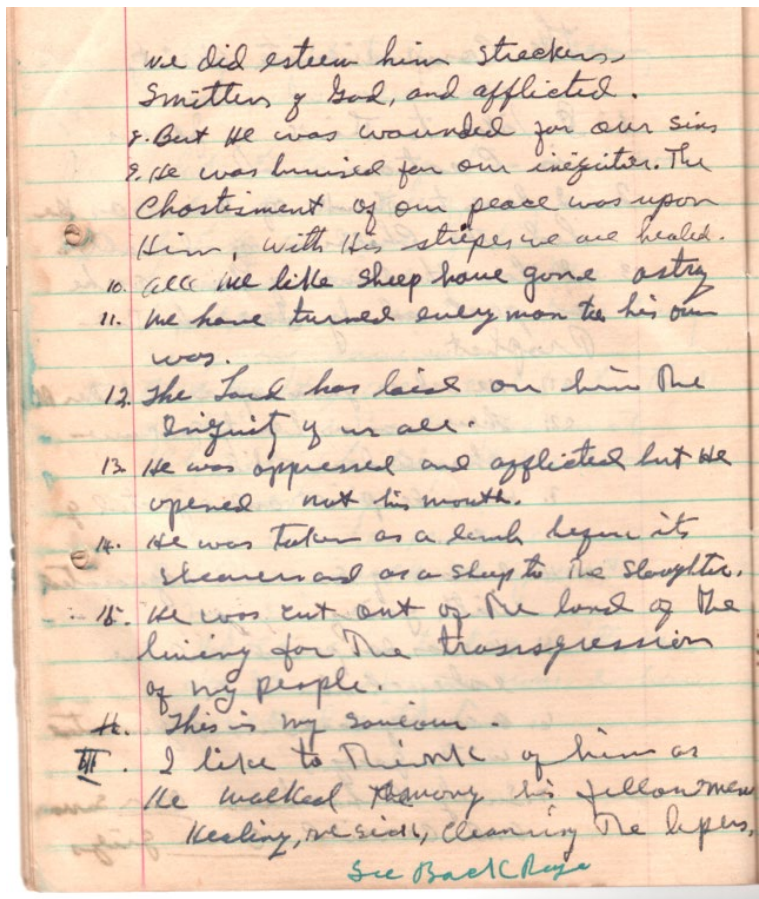 we did esteem him streckers,
Smitten of God, and afflicted.
8. But He was wounded for our sins
9. He was bruised for our iniquities. The
Chastisment of our peace was upon
Him, with His stripes we are healed.
10. All we like sheep have gone astry
11. We have turned every man to his own
way.
12. The Lord has laid on him the
Iniquity of us all.
13. He was oppressed and afflicted but He
opened not his mouth.
14. He was taken as a lamb before its
shearers and as a sheep to the slaughter.
15. He was cut out of the land of the
living for the transgression
of my people.
This is my saviour.
III. I like to think of him as
He walked among his fellowmen
Healing, the sick, cleansing the lepers,
See Back Page